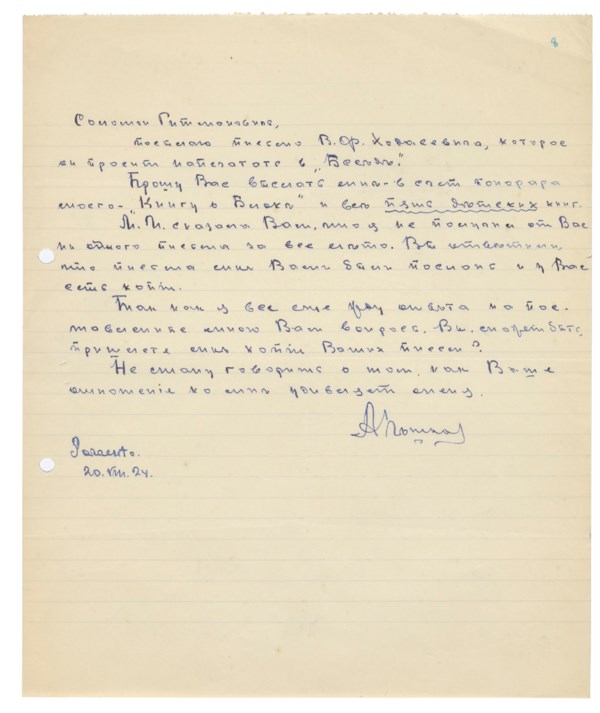 8
Соломон Гитмановичъ,
посылаю письмо В.Ф. Ходасевича, которое
он просит напечатать в „Беседѣ".
Прошу Вас выслать мнѣ - в счет гонорара
моего - „Книгу о Блокѣ" и всѣ пять детских книг.
М.И. сказала Вам, что я не получил от Вас
ни одного письма за все лѣто. Вы отвѣтили,
что письма мнѣ Вами были посланы и у Вас
есть копии.
Так как я все еще жду отвѣта на пос-
тавленные мною Вам вопросы, Вы, может быть,
пришлете мнѣ копии Ваших писем?
Не стану говорить о том, как Ваше
отношенiе ко мнѣ удивляет меня.
А Пѣшков
Sorrento.
20.VIII.24.